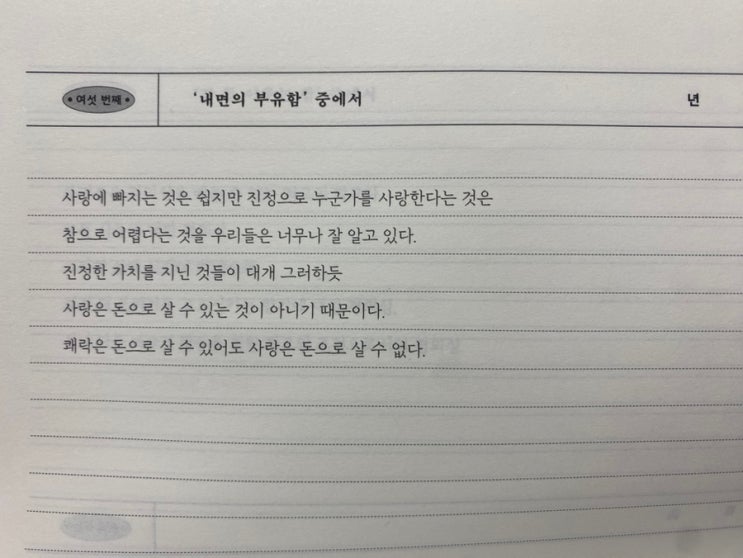 • 여섯 번째 • '내면의 부유함' 중에서 년
사랑에 빠지는 것은 쉽지만 진정으로 누군가를 사랑한다는 것은
참으로 어렵다는 것을 우리들은 너무나 잘 알고 있다.
진정한 가치를 지닌 것들이 대개 그러하듯
사랑은 돈으로 살 수 있는 것이 아니기 때문이다.
쾌락은 돈으로 살 수 있어도 사랑은 돈으로 살 수 없다.